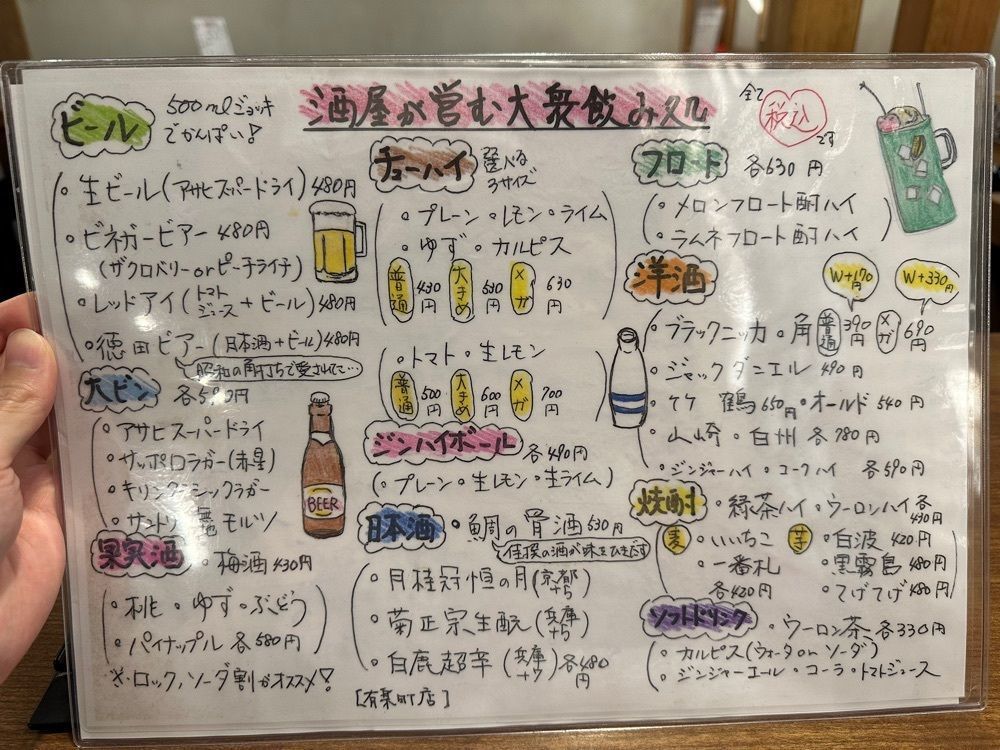 酒屋が営む大衆飲み処
全て
税込
です
ビール
500mlジョッキ
でかんぱい!
・生ビール(アサヒスーパードライ)480円
・ビネガービアー 480円
(ザクロベリーorピーチライチ)
・レッドアイ(トマトジュース+ビール)480円
・徳田ビアー(日本酒+ビール)480円
昭和の角打ちで愛されて…
大ビン 各590円
・アサヒスーパードライ
・サッポロラガー(赤星)
・キリンクラシックラガー
・サントリー モルツ
BEER
果実酒 ・梅酒430円
・桃・ゆず・ぶどう
・パイナップル 各580円
※ロック、ソーダ割がオススメ!
チューハイ 選べる
3サイズ
・プレーン・レモン・ライム
・ゆず・カルピス
普通 430円 大きめ 530円 メガ 630円
・トマト・生レモン
普通 500円 大きめ 600円 メガ 700円
ジンハイボール 各490円
(プレーン・生レモン・生ライム)
日本酒 ・鯛の骨酒530円
・月桂冠 恒の月(京都)
・菊正宗 生酛(兵庫)
・白鹿 超辛(兵庫)各480円
[有楽町店]
フロート 各630円
・メロンフロート酎ハイ
・ラムネフロート酎ハイ
洋酒 W+170円 W+330円
・ブラックニッカ・角 普通 390円 メガ 690円
・ジャックダニエル 490円
鶴650円・オールド 540円
・山崎・白州 各780円
・ジンジャーハイ・コークハイ 各590円
焼酎 ・緑茶ハイ・ウーロンハイ 各490円
麦 ・いいちこ 芋 ・白波 420円
・一番札 ・黒霧島 480円
各420円 ・てげてげ480円
ソフトドリンク ・ウーロン茶 各330円
・カルピス(ウォーター or ソーダ)
・ジンジャーエール・コーラ・トマトジュース